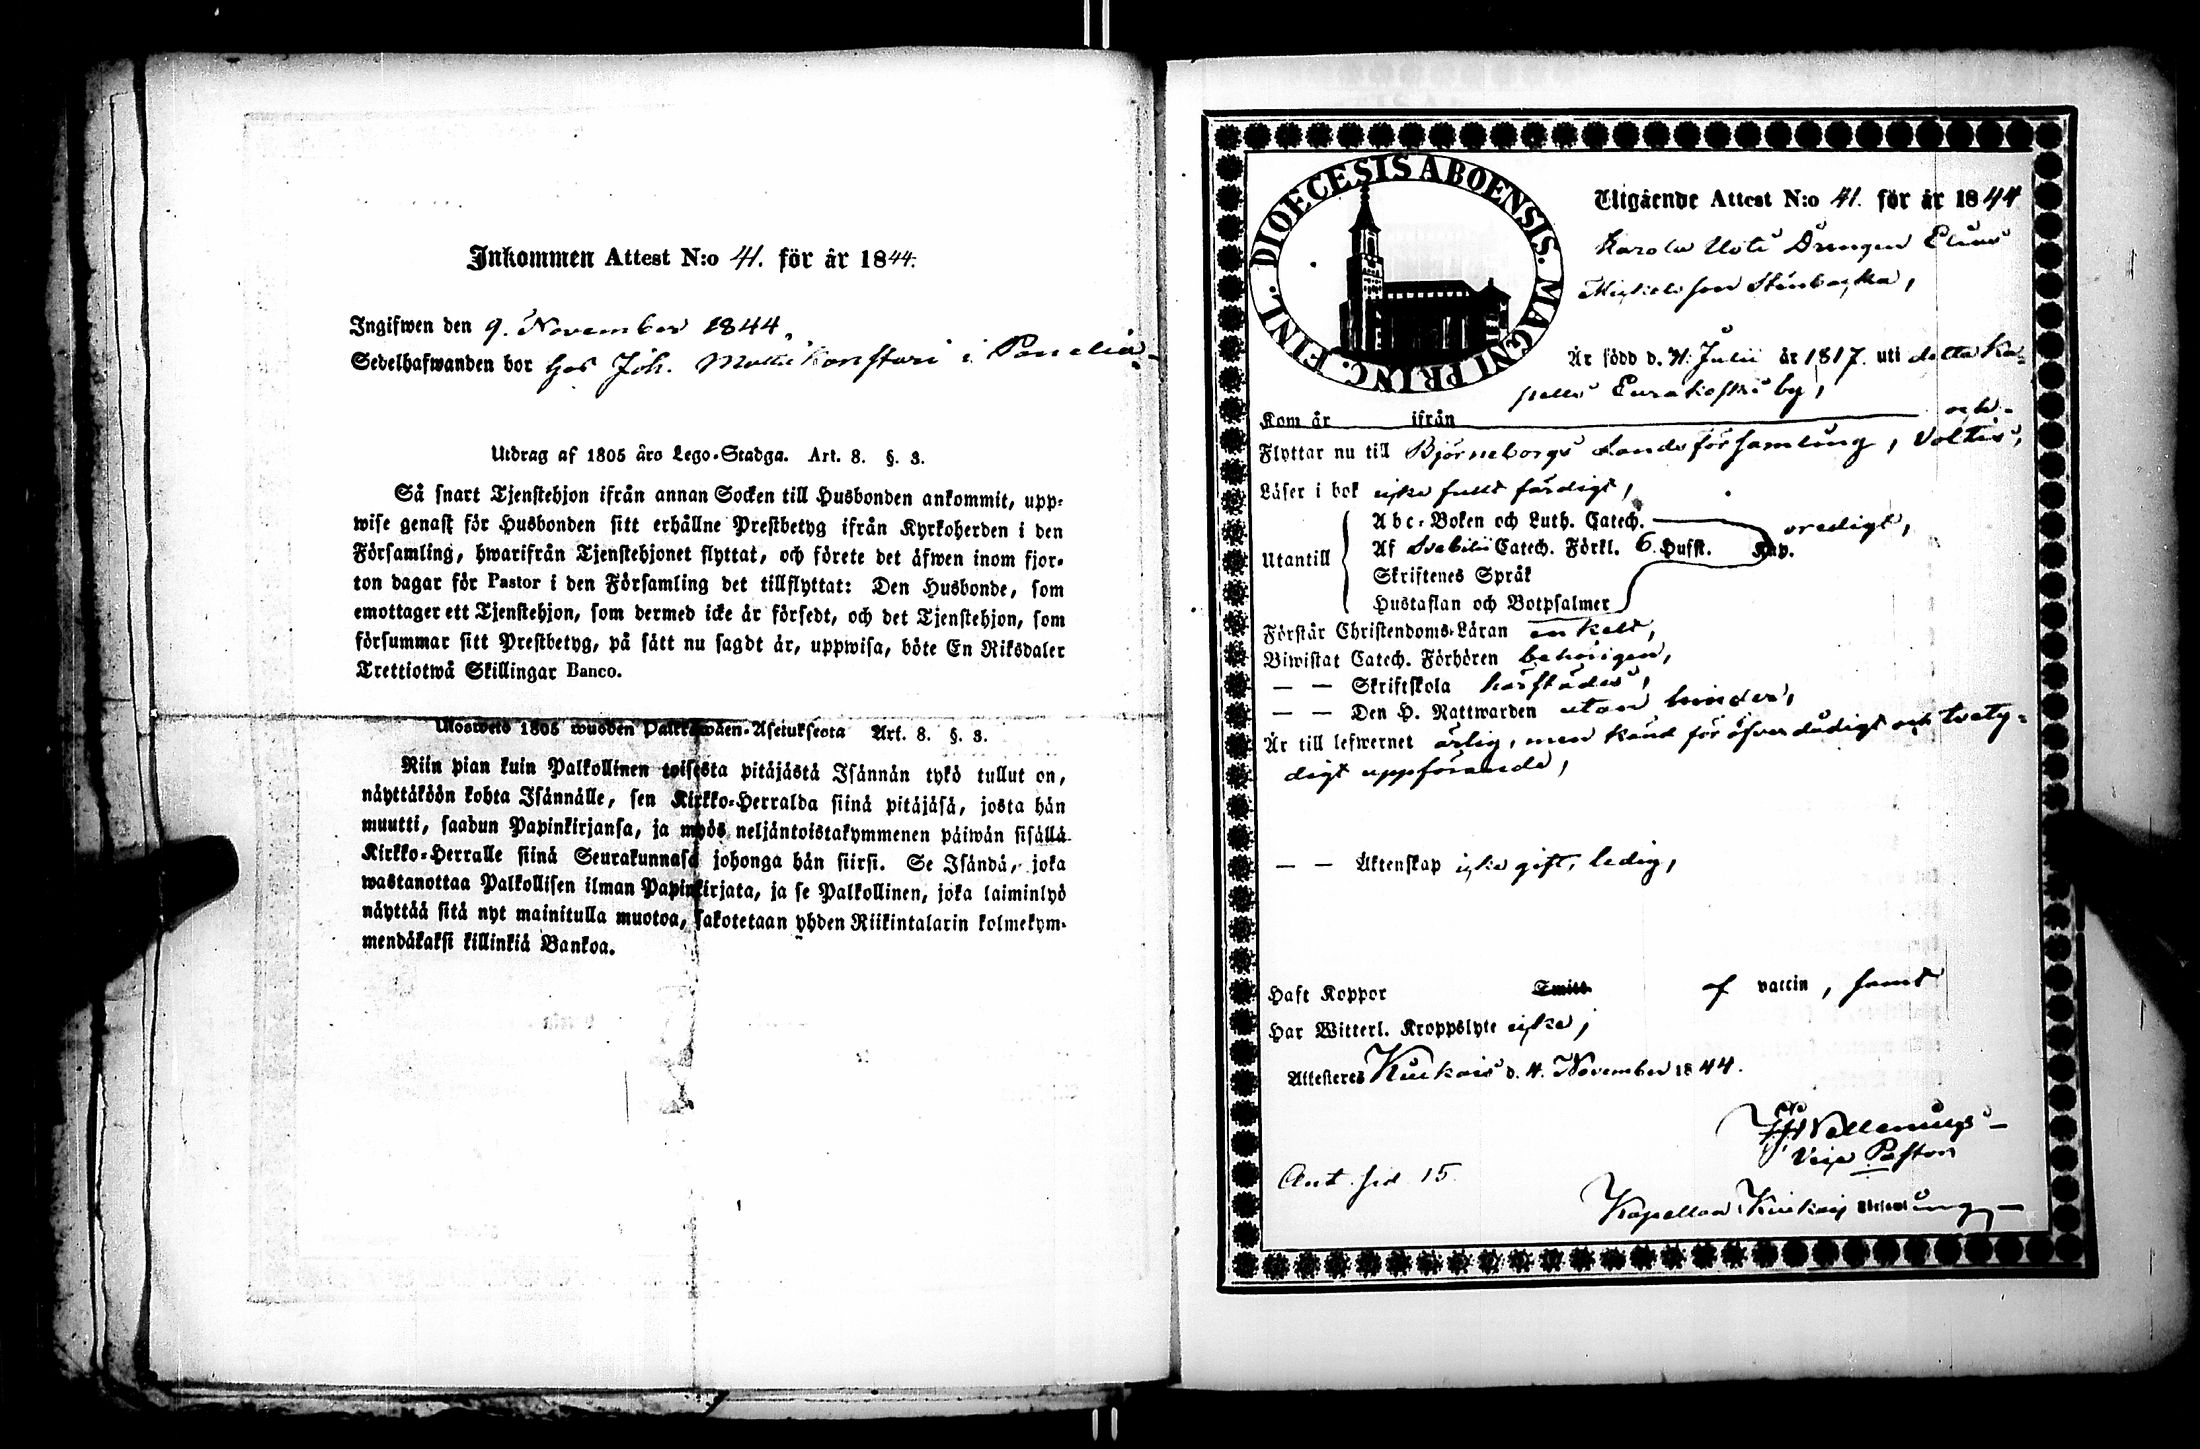 Inkommen Attest N:o 41. för år 1844.
Ingifwen den 9. November 1844.
Sedelhafwanden bor hos Joh. i Panelia
Utdrag af 1805 års Lego-Stadga. Art. 8. §. 3.
Så snart Tjenstehjon ifrån annan Socken till Husbonden ankommit, upp-
wise genast för Husbonden sitt erhållne Prestbetyg ifrån Kyrkoherden i den
Församling, hwarifrån Tjenstehjonet flyttat, och förete det äfwen inom fjor-
ton dagar för Pastor i den Församling det tillflyttat: Den Husbonde, som
emottager ett Tjenstehjon, som dermed icke är försedt, och det Tjenstehjon, som
försummar sitt Prestbetyg, på sätt nu sagdt är, uppwisa, böte En Riksdaler
Trettiotwå Skillingar Banco.
Ulosweto 1805 wuoden Palkkawäen-Asetuksesta Art. 8. §. 3.
Niin pian kuin Palkollinen toisesta pitäjästä Isännän tykö tullut on,
näyttäköön kohta Isännälle, sen Kirkko-Herralda siinä pitäjäsä, josta hän
muutti, saadun Papinkirjansa, ja myös neljäntoistakymmenen päiwän sisällä
Kirkko-Herralle siinä Seurakunnasa johonga hän siirsi. Se Isändä, joka
wastanottaa Palkollisen ilman Papinkirjata, ja se Palkollinen, joka laiminlyö
näyttää sitä nyt mainitulla muotoa, sakotetaan yhden Riikintalarin kolmekym-
mendäkaksi killinkiä Bankoa.
DIOECESIS ABOENSIS. MAGNI PRINC. FINL.
Utgående Attest N:o 41. för år 1844
Drengen Elias
Michelsson Stenbacka,
Är född d. 31. Julii år 1817. uti detta Ka-
pells Eurakoski by,
Kom år ifrån och
Flyttar nu till Björneborgs Landsförsamling,
Läser i bok icke fullt färdigt,
Utantill
Abc-Boken och Luth. Catech.
Af Svebilii Catech. Förkl. 6. Hufst. Kap. oredigt,
Skriftenes Språk
Hustaflan och Botpsalmer
Förstår Christendoms-Läran enkelt,
Biwistat Catech. Förhören behörigen,
— — Skriftskola härstädes,
— — Den H. Nattwarden utan hinder,
Är till lefwernet ärlig, men känd för öfverdådigt och tvety-
digt uppförande,
— — Äktenskap icke gift, ledig,
Haft Koppor Smitt af vaccin, samt
Har Witterl. Kroppslyte icke,
Attesteres Kiukais d. 4. November 1844.
Vice Pastor
Ant. sid 15.
Kapellan i Kiukais